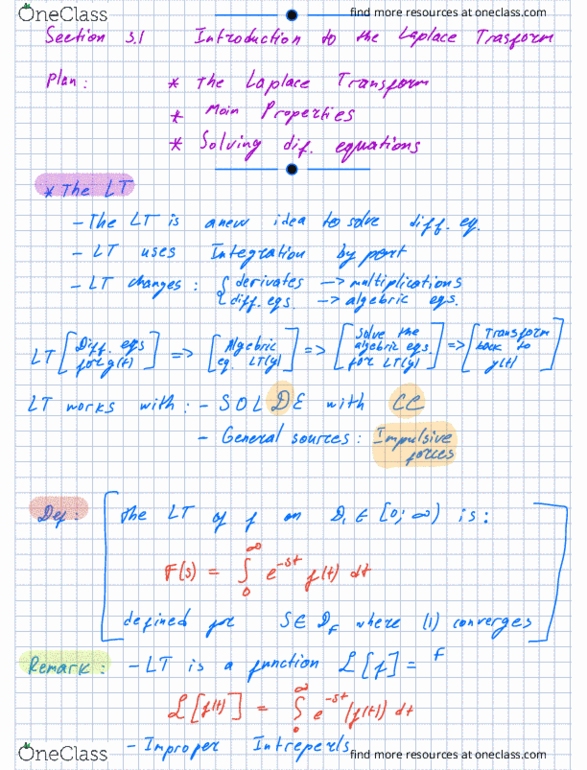 OneClass
find more resources at oneclass.com
Section 3.1 Introduction to the Laplace Trasform
Plan: * The Laplace Transform
* Main Properties
* Solving dif. equations
* The LT
- The LT is a new idea to solve diff. eq.
- LT uses Integration by part
- LT changes: { derivates -> multiplications
{ diff. eqs. -> algebric eqs.
LT [Diff. eqs for y(t)] => [Algebric eq. LT(y)] => [Solve the algebric eqs. for LT(y)] => [Transform back to y(t)]
LT works with: - SOLDE with CC
- General sources: Impulsive forces
Def: The LT of f on D₁ ∈ [0; ∞) is:
F(s) = ∫₀^∞ e^-st f(t) dt
defined for S ∈ D_F where (1) converges
Remark: - LT is a function L[f] = F
L[f(t)] = ∫₀^∞ e^-st (f(t)) dt
- Improper Intreperls
OneClass
find more resources at oneclass.com